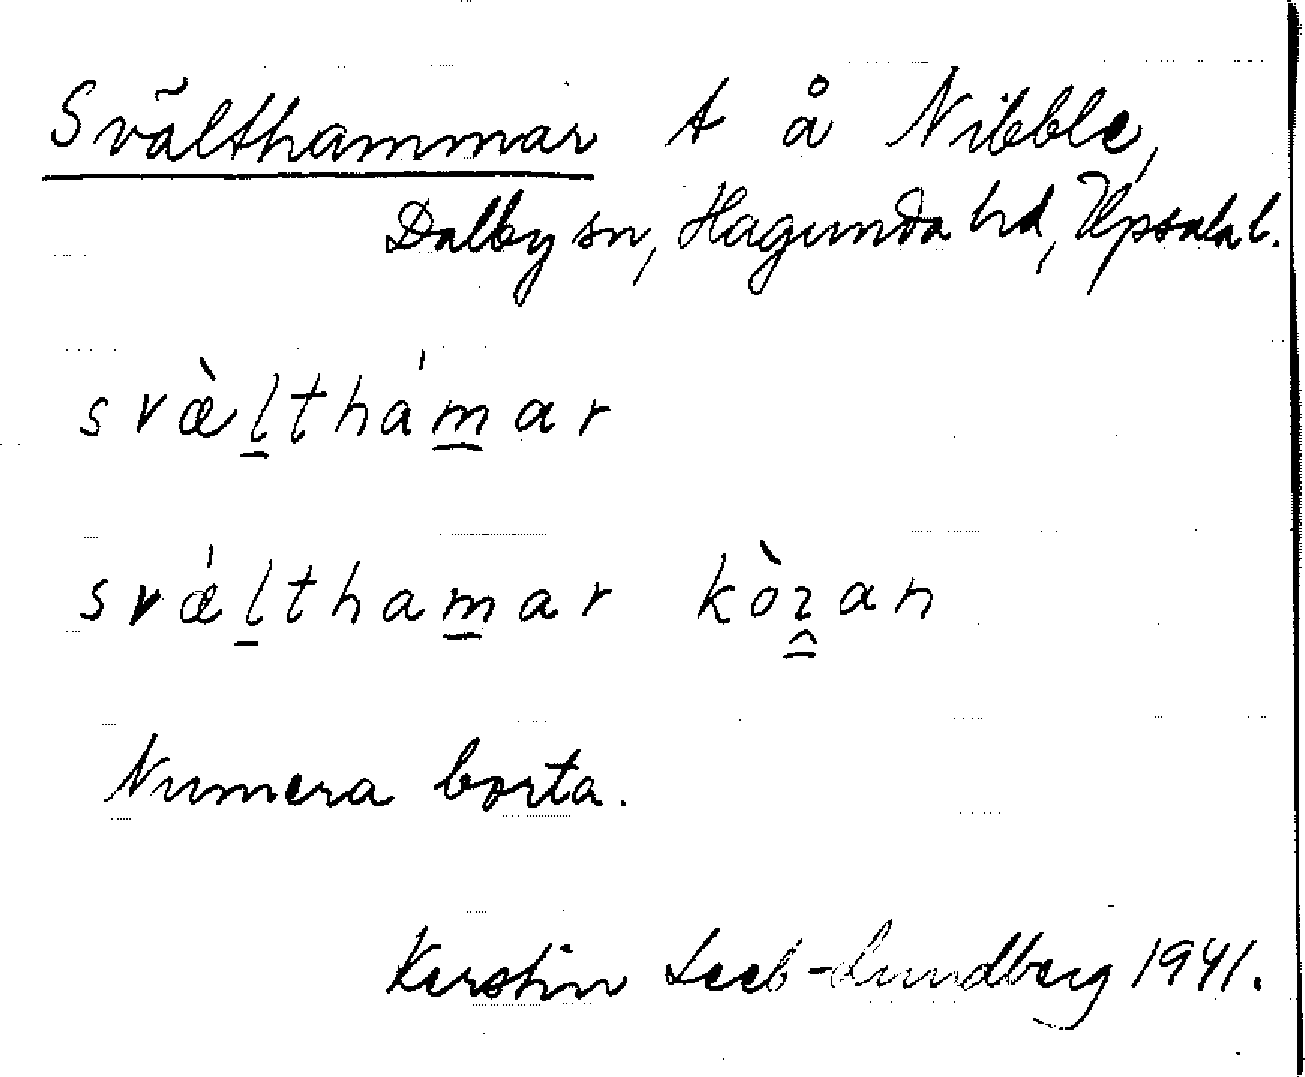 Svälthammar t å Nibble,
Dalby sn, Hagunda hd, Upsala l.
svæ̀l̲thá'm̲ar
svǽl̲tham̲ar kòɿ̲an
Numera borta.
Kerstin Leeb-Lundberg 1941.